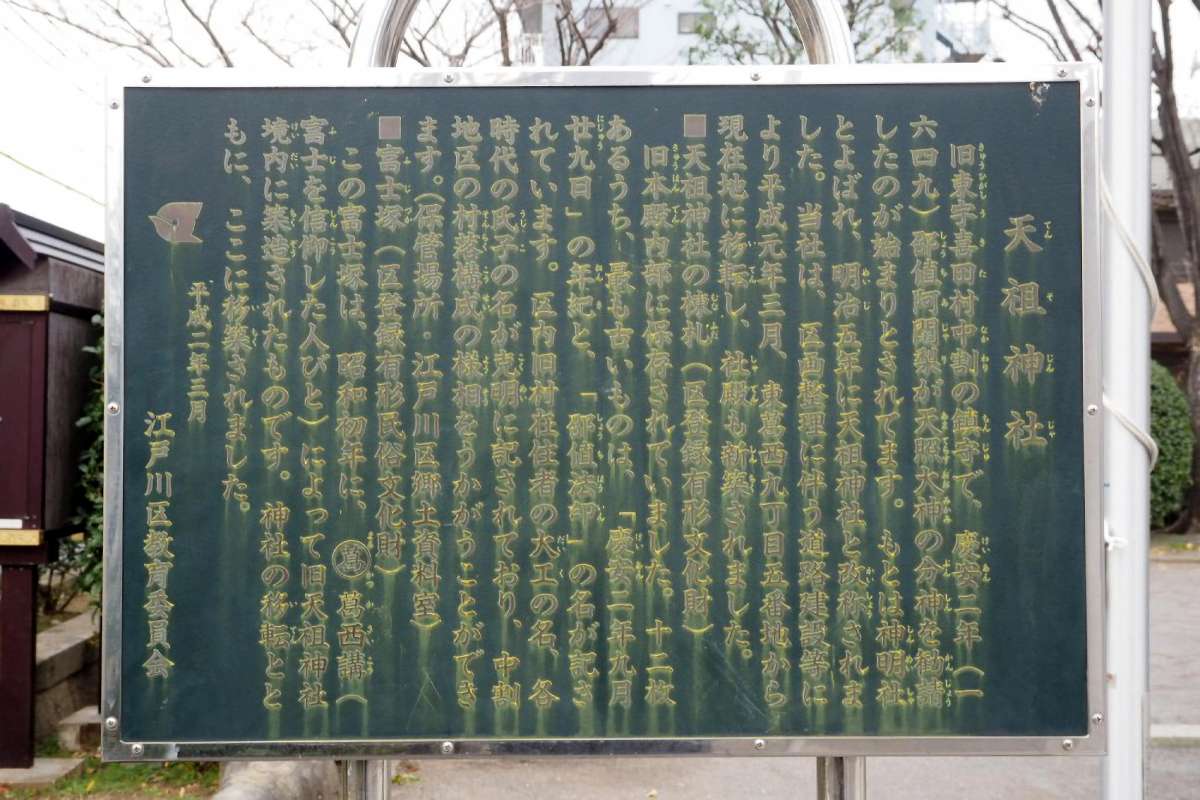 天祖神社
旧東宇喜田村中割の鎮守で、慶安二年（一
六四九）御値阿闍梨が天照大神の分神を勧請
したのが始まりとされてます。もとは神明社
とよばれ、明治五年に天祖神社と改称されま
した。当社は、区画整理に伴う道路建設等に
より平成元年三月、東葛西九丁目五番地から
現在地に移転し、社殿も新築されました。
■天祖神社の棟札（区登録有形文化財）
旧本殿内部に保存されていました。十二枚
あるうち、最も古いものは、「慶安二年九月
廿九日」の年紀と、「御値法印」の名が記さ
れています。区内旧村在住者の大工の名、各
時代の氏子の名が克明に記されており、中割
地区の村落構成の様相をうかがうことができ
ます。（保管場所・江戸川区郷土資料室）
■富士塚（区登録有形民俗文化財）
この富士塚は、昭和初年に、㊀葛西講（
富士を信仰した人びと）によって旧天祖神社
境内に築造されたものです。神社の移転とと
もに、ここに移築されました。
平成二年三月
江戸川区教育委員会